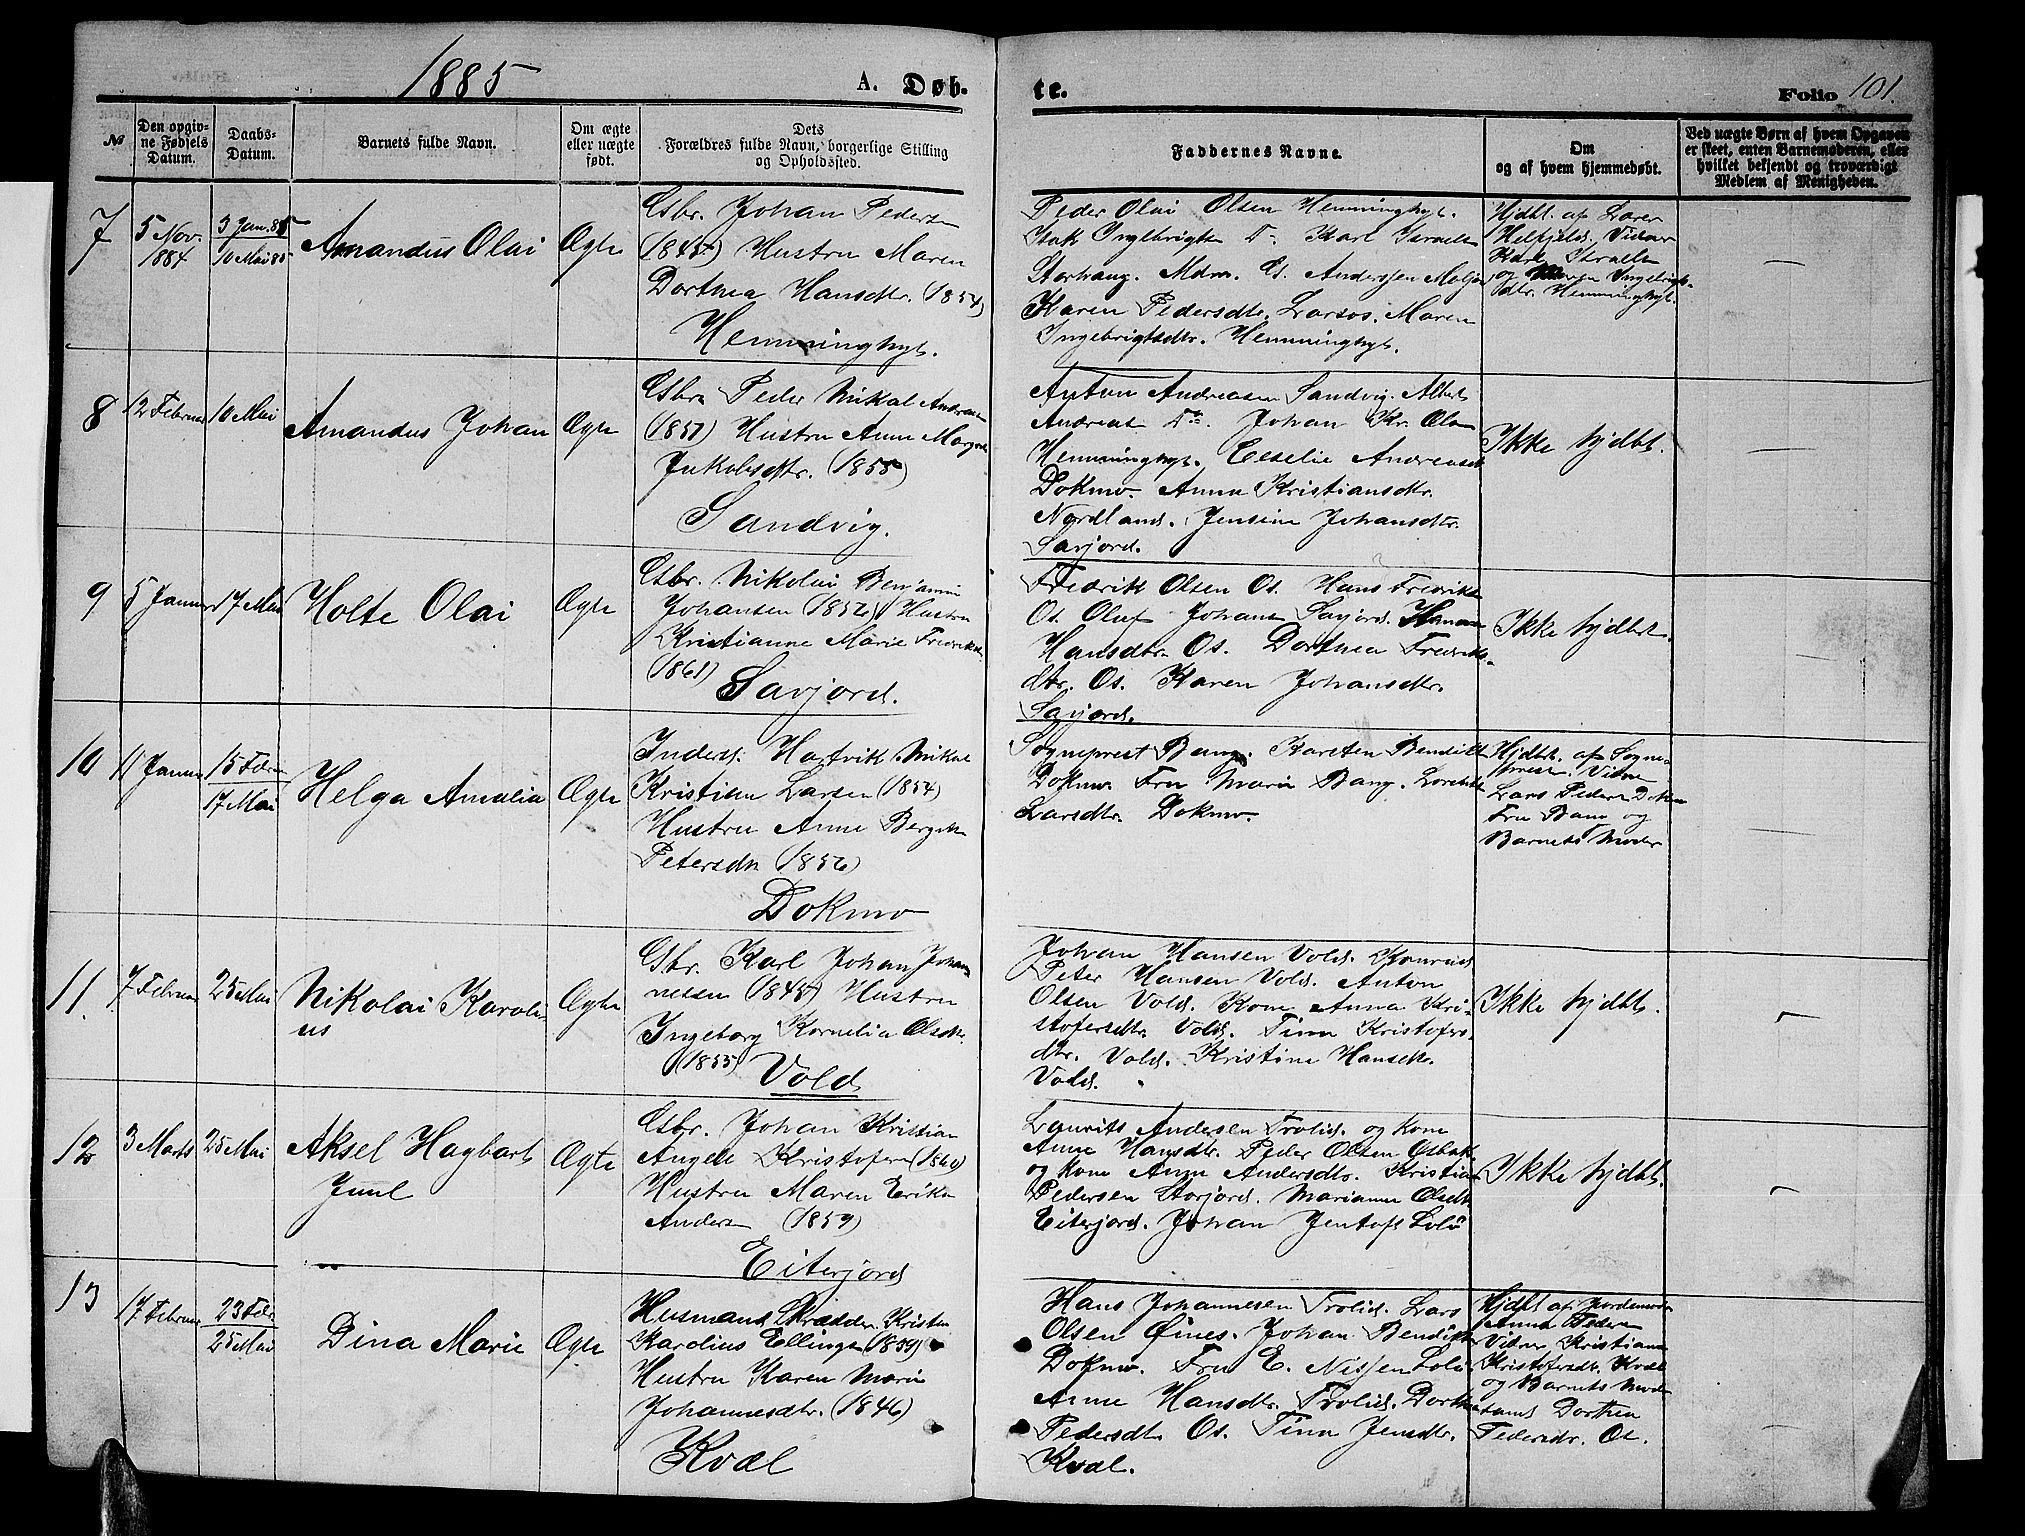 1885
A. Døb-
te.
Folio 101.
№
Den opgiv-
ne Fødsels
Datum.
Daabs-
Datum.
Barnets fulde Navn.
Om ægte
eller uægte
født.
Dets
Forældres fulde Navn, borgerlige Stilling
og Opholdssted.
Faddernes Navne.
Om
og af hvem hjemmedøbt.
Ved uægte Børn af hvem Opgaven
er skeet, enten Barnemoderen, eller
hvilket bekjendt og troværdigt
Medlem af Menigheden.
7
5 Nov.
1884
3 Jan. 85
10 Mai 85
Amandus Olai
Ægte
Gsbr. Johan Peders
(1845) Hustru Maren
Dorthea Hansdtr. (1854)
Hemminghyt.
Peder Olai Olsen Hemminghyt.
Isak Ingebrigts Do Karl Israels
Storhaug. Mdm. Andersen
Karen Pedersdtr. Larsos. Maren
Ingebrigtsdtr. Hemminghyt.
Hjdbt. af Lærer
Helfjeld. Vidner
Karl Israels
og Maren Ingebrigts-
dtr. Hemminghyt.
8
12 Februar
10 Mai
Amandus Johan
Ægte
Gsbr Peder Nikal Andreas
(1857) Hustru Anne Margrete
Jakobsdtr. (1855)
Sandvig.
Anton Andreasen Sandvig. Albert
Andreas Do. Johan Kr. Ols
Hemminghyt. Andreasd
Dokmo. Anna Kristiansdtr.
Nordland. Jensine Johansdtr.
Savjord.
Ikke hjdbt.
9
5 Januar
17 Mai
Holte Olai
Ægte
Gsbr. Nikolai Benjamin
Johansen (1852) Hustru
Kristianne Marie Fredriksd
(1861)
Savjord.
Fredrik Olsen Os. Hans Fredriks
Os. Oluf Johans Savjord. Hanna
Hansdtr. Os. Dorthea Fredriks-
dtr. Os. Karen Johansdtr.
Savjord.
Ikke hjdbt.
10
11 Januar
15 Febru
17 Mai
Helga Amalia
Ægte
Inders. Hartvik Mikal
Kristian Larsen (1854)
Hustru Anne Bergitte
Petersdtr (1856)
Dokmo
Sogneprest Bang. Karsten Bendikt
Dokmo. Fru Marie Bang. Lorentse
Larsdtr. Dokmo.
Hjdbt. af Sogne-
prest. Vidne
Lars Peders Dokmo
Fru Bang og
Barnets Moder
11.
7 Februar
25 Mai
Nikolai Karoli-
us
Ægte
Gsbr. Karl Johan Johan-
nessen (1845) Hustru
Ingeborg Kornelia Olsdtr.
(1855)
Vold
Johan Hansen Vold. Konrad
Peter Hansen Vold. Anton
Olsen Vold. Kone Anna Kri-
stofersdtr. Vold. Tina Kristofers-
dtr. Vold. Kristine Hansdtr.
Vold.
Ikke hjdbt.
12
3 Marts
25 Mai
Aksel Hagbart
Juul
Ægte
Gsbr. Johan Kristian
Angell Kristofers (1860)
Hustru Maren Erika
Anders (1859)
Eiterjord
Laurits Andersen Trolid. og kone
Anne Hansdtr. Peder Olsen Osbak
og kone Anne Andersdtr. Kristian
Pedersen Storjord. Marianne Olsdtr
Eiterjord. Johan Jentoft
Ikke hjdbt.
13
17 Februar
23 Febr
25 Mai
Dina Marie
Ægte
Husmand Skrædder Kristen
Karolius Ellings (1859)
Hustru Karen Marie
Johannesdtr. (1846)
Kvæl
Hans Johannesen Trolid. Lars
Olsen Øines. Johan Bendikts
Dokmo. Fru E. Nissen
Anne Hansdtr. Trolid. Dorthea
Pedersdtr Os. Tina Jensdtr.
Kvæl.
Hjdbt af Jordemoder
Anna Peders
Vidner Kristiane
Kristofersdtr. Kvæl
og Barnets Moder
samt Dorthea
Pedersdr. Os.